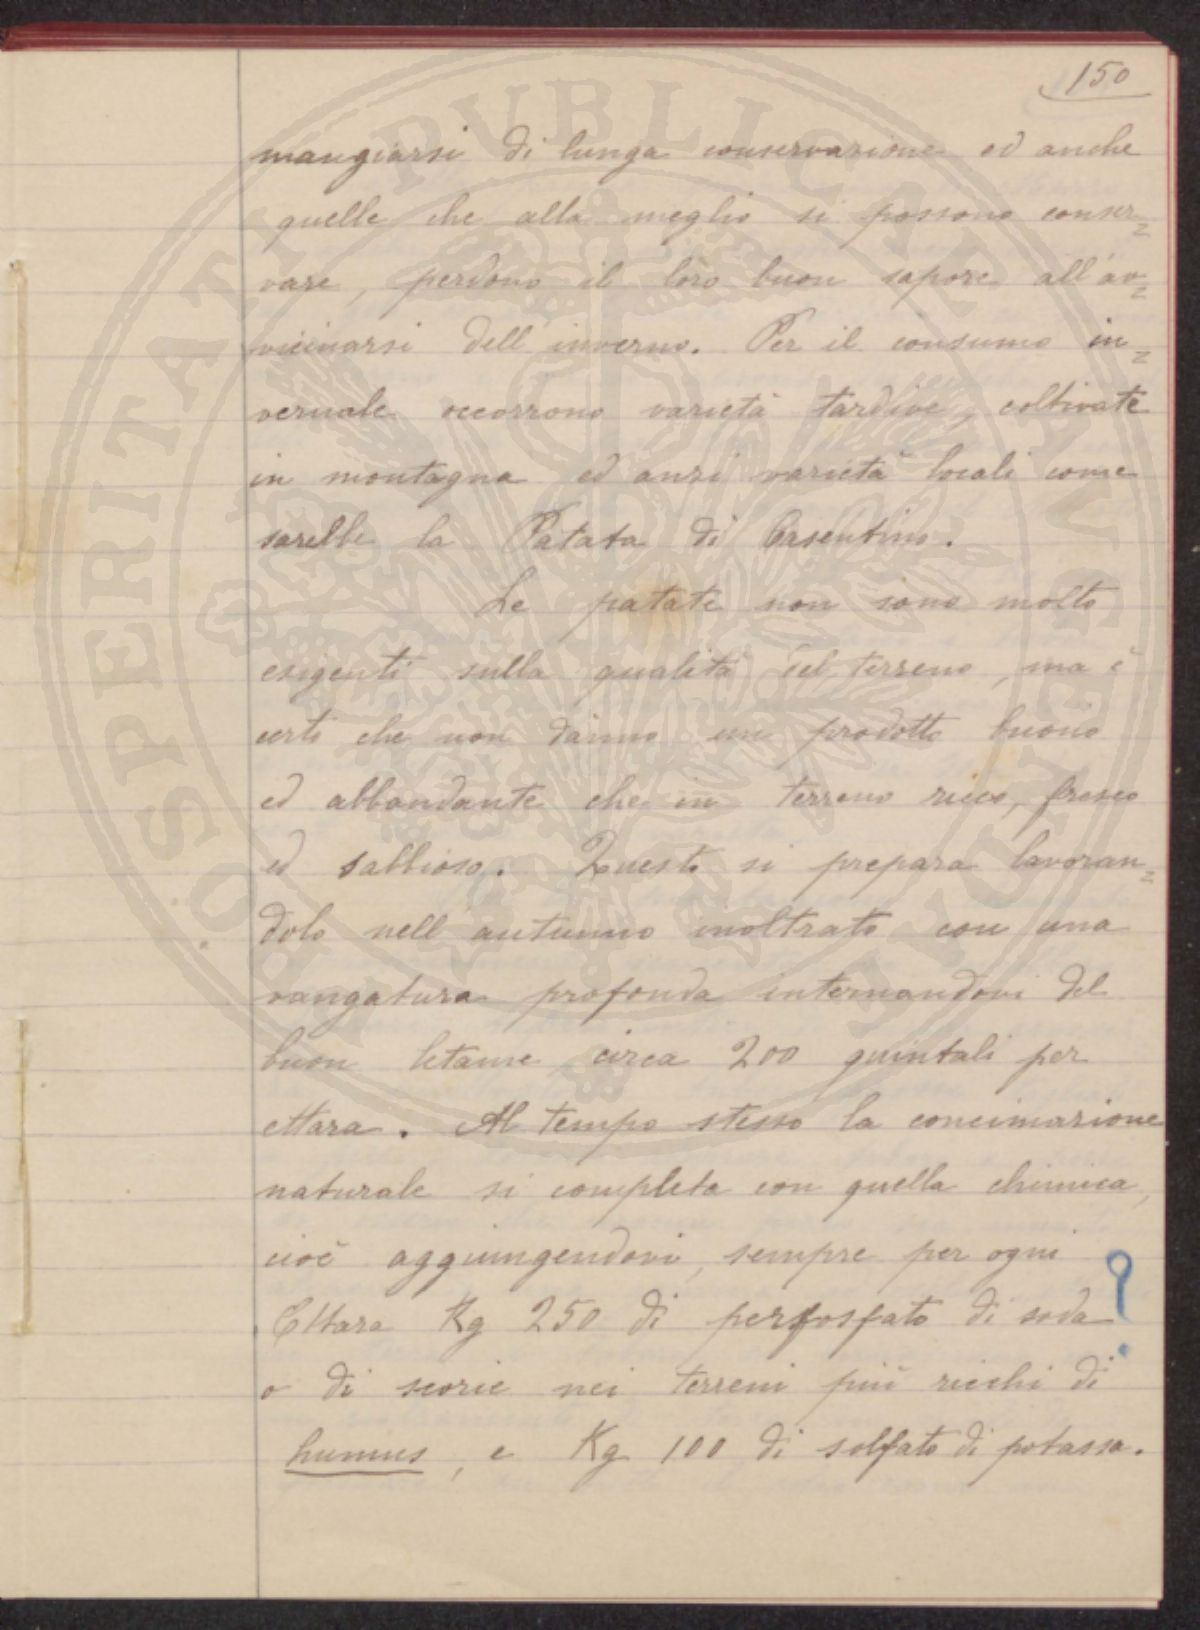 150
mangiarsi di lunga conservazione ed anche
quelle che alla meglio si possono conser=
vare, perdono il loro buon sapore all'av=
vicinarsi dell'inverno. Per il consumo in=
vernale occorrono varietà tardive, coltivate
in montagna ed anzi varietà locali come
sarebbe la Patata di Casentino.
Le patate non sono molto
esigenti sulla qualità del terreno, ma è
certo che non danno un prodotto buono
ed abbondante che in terreno ricco, fresco
ed sabbioso. Questo si prepara lavoran=
dolo nell'autunno inoltrato con una
vangatura profonda internandovi del
buon letame circa 200 quintali per
ettara. Al tempo stesso la concimazione
naturale si completa con quella chimica,
cioè aggiungendovi, sempre per ogni
Ettara Kg 250 di perfosfato di soda ?
o di scorie nei terreni più ricchi di
humus, e Kg 100 di solfato di potassa.
PROSPERITATI PUBLICAE AUGENDAE